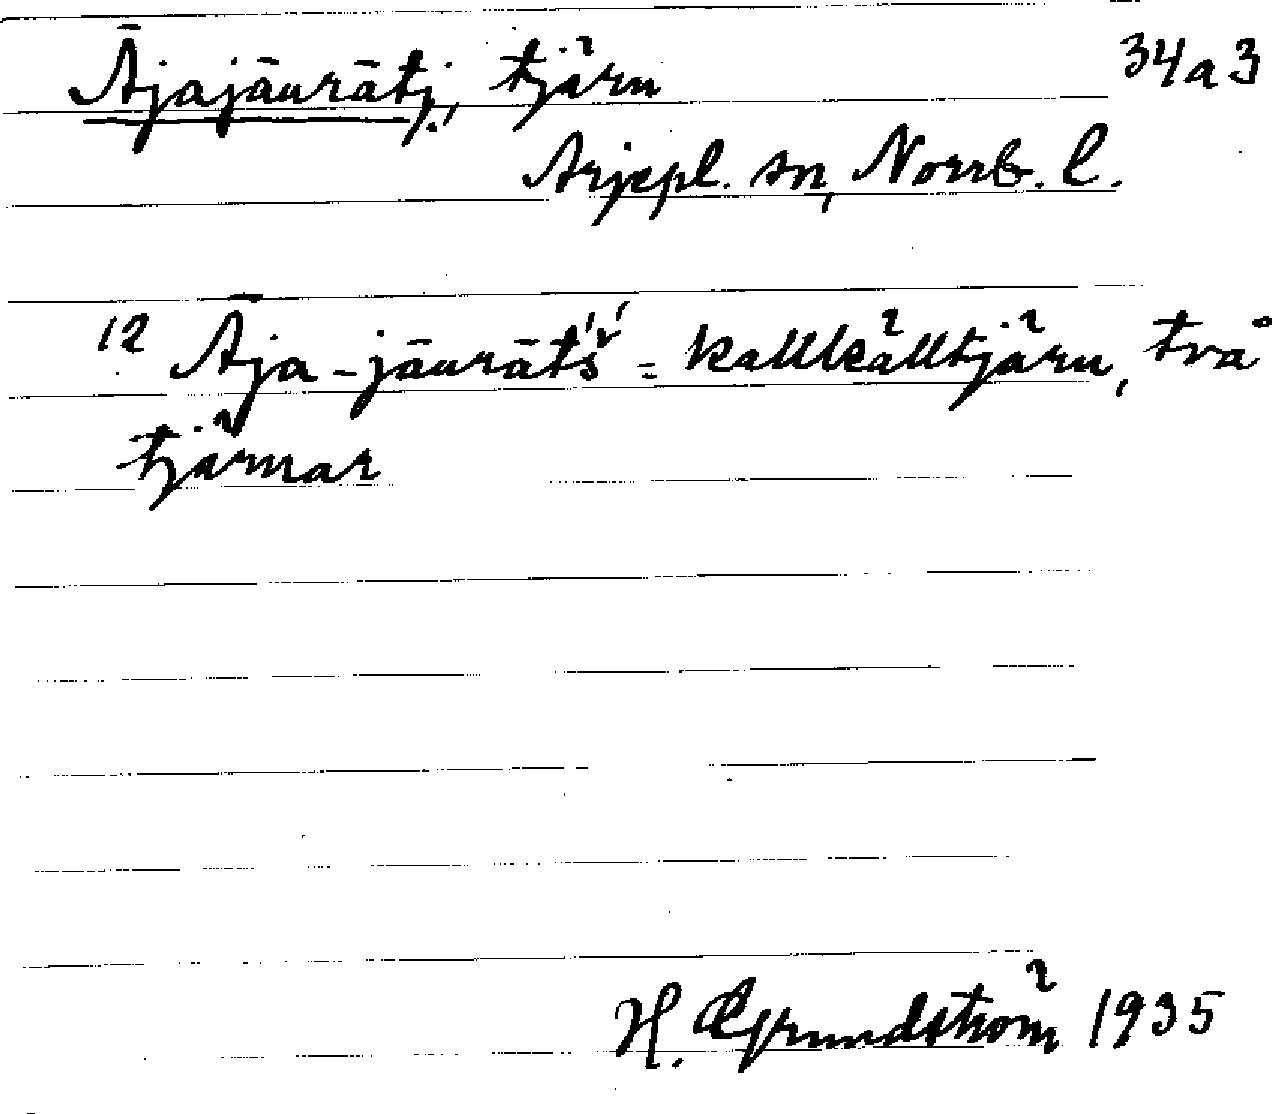 Ājajāurātj, tjärn 34a3
Arjepl. sn, Norrb. l.
12 Āja-jāurāt́š́ = kallkälltjärn, två
tjärnar
H. Grundström 1935